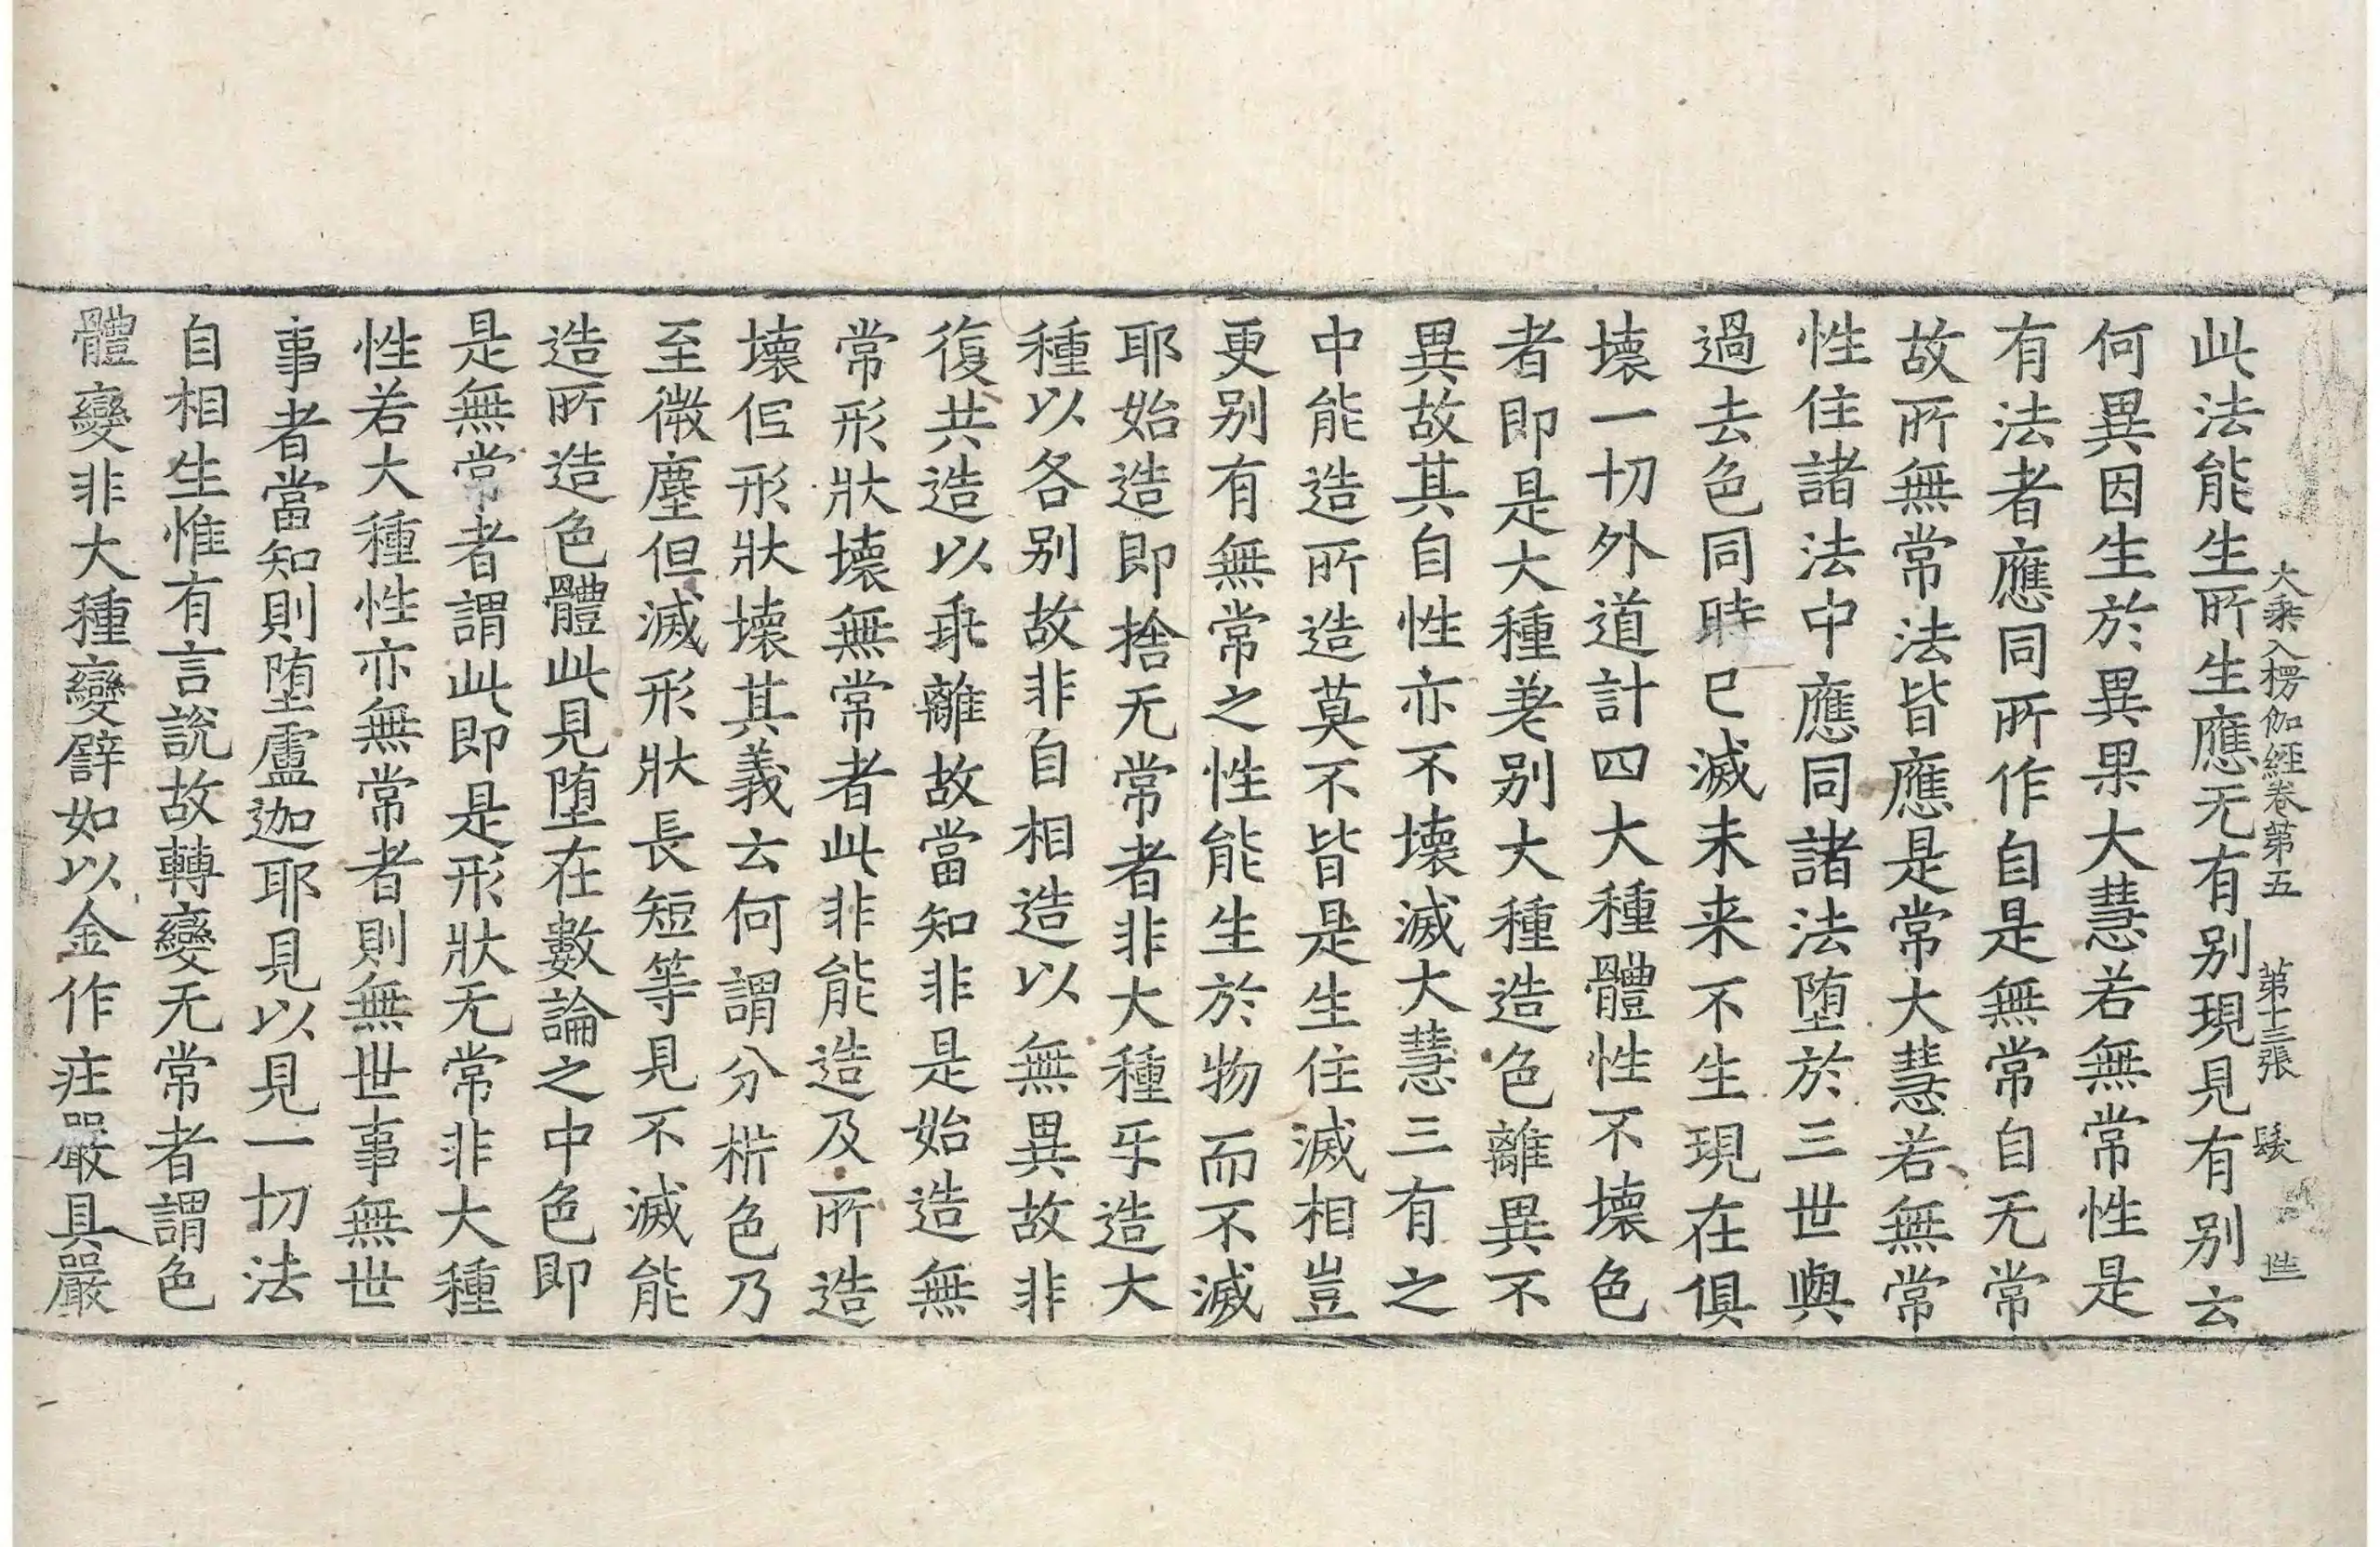 大乘入楞伽經卷第五 第十三張 髮
此法能生所生應无有别現見有别云
何異因生於異果大慧若無常性是
有法者應同所作自是無常自无常
故所無常法皆應是常大慧若無常
性住諸法中應同諸法堕於三世與
過去色同時已滅未来不生現在俱
壞一切外道計四大種體性不壞色
者即是大種差别大種造色離異不
異故其自性亦不壞滅大慧三有之
中能造所造莫不皆是生住滅相豈
更别有無常之性能生於物而不滅
耶始造即捨无常者非大種㸦造大
種以各别故非自相造以無異故非
復共造以乖離故當知非是始造無
常形狀壞無常者此非能造及所造
壞但形狀壞其義云何謂分㭊色乃
至微塵但滅形狀長短等見不滅能
造所造色體此見堕在數論之中色即
是無常者謂此即是形狀无常非大種
性若大種性亦無常者則無世事無世
事者當知則堕盧迦耶見以見一切法
自相生惟有言説故轉變无常者謂色
體變非大種變譬如以金作㽵嚴具嚴